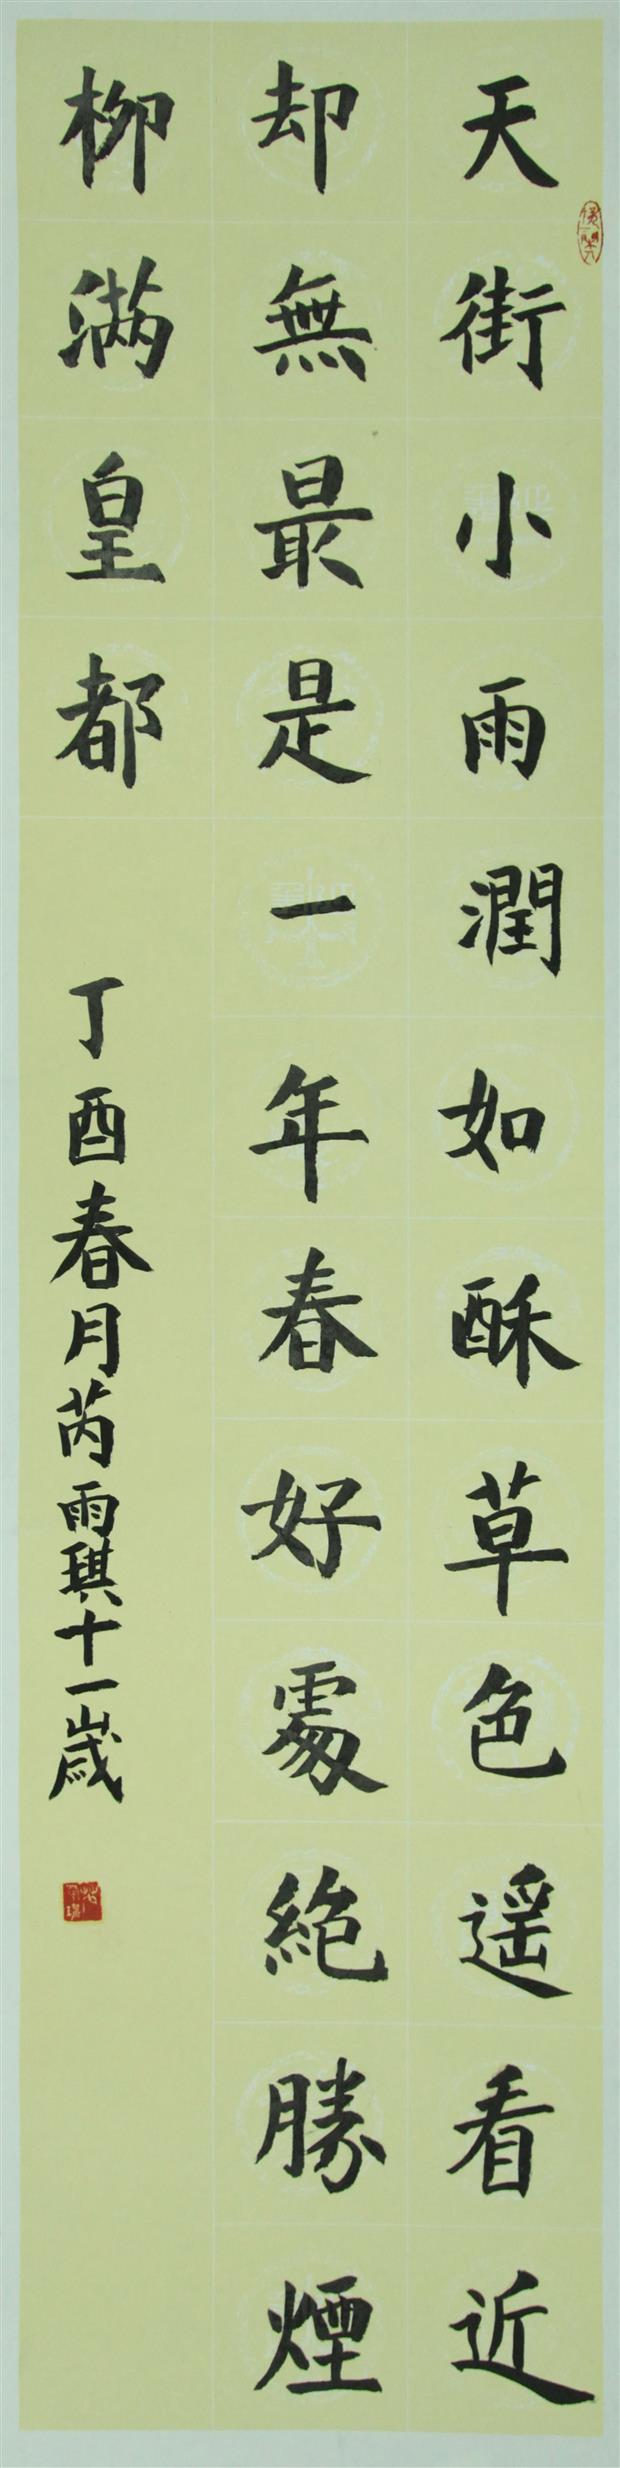 天街小雨潤如酥草色遥看近
却無最是一年春好處絶勝煙
柳满皇都
丁酉春月芮雨琪十一歲